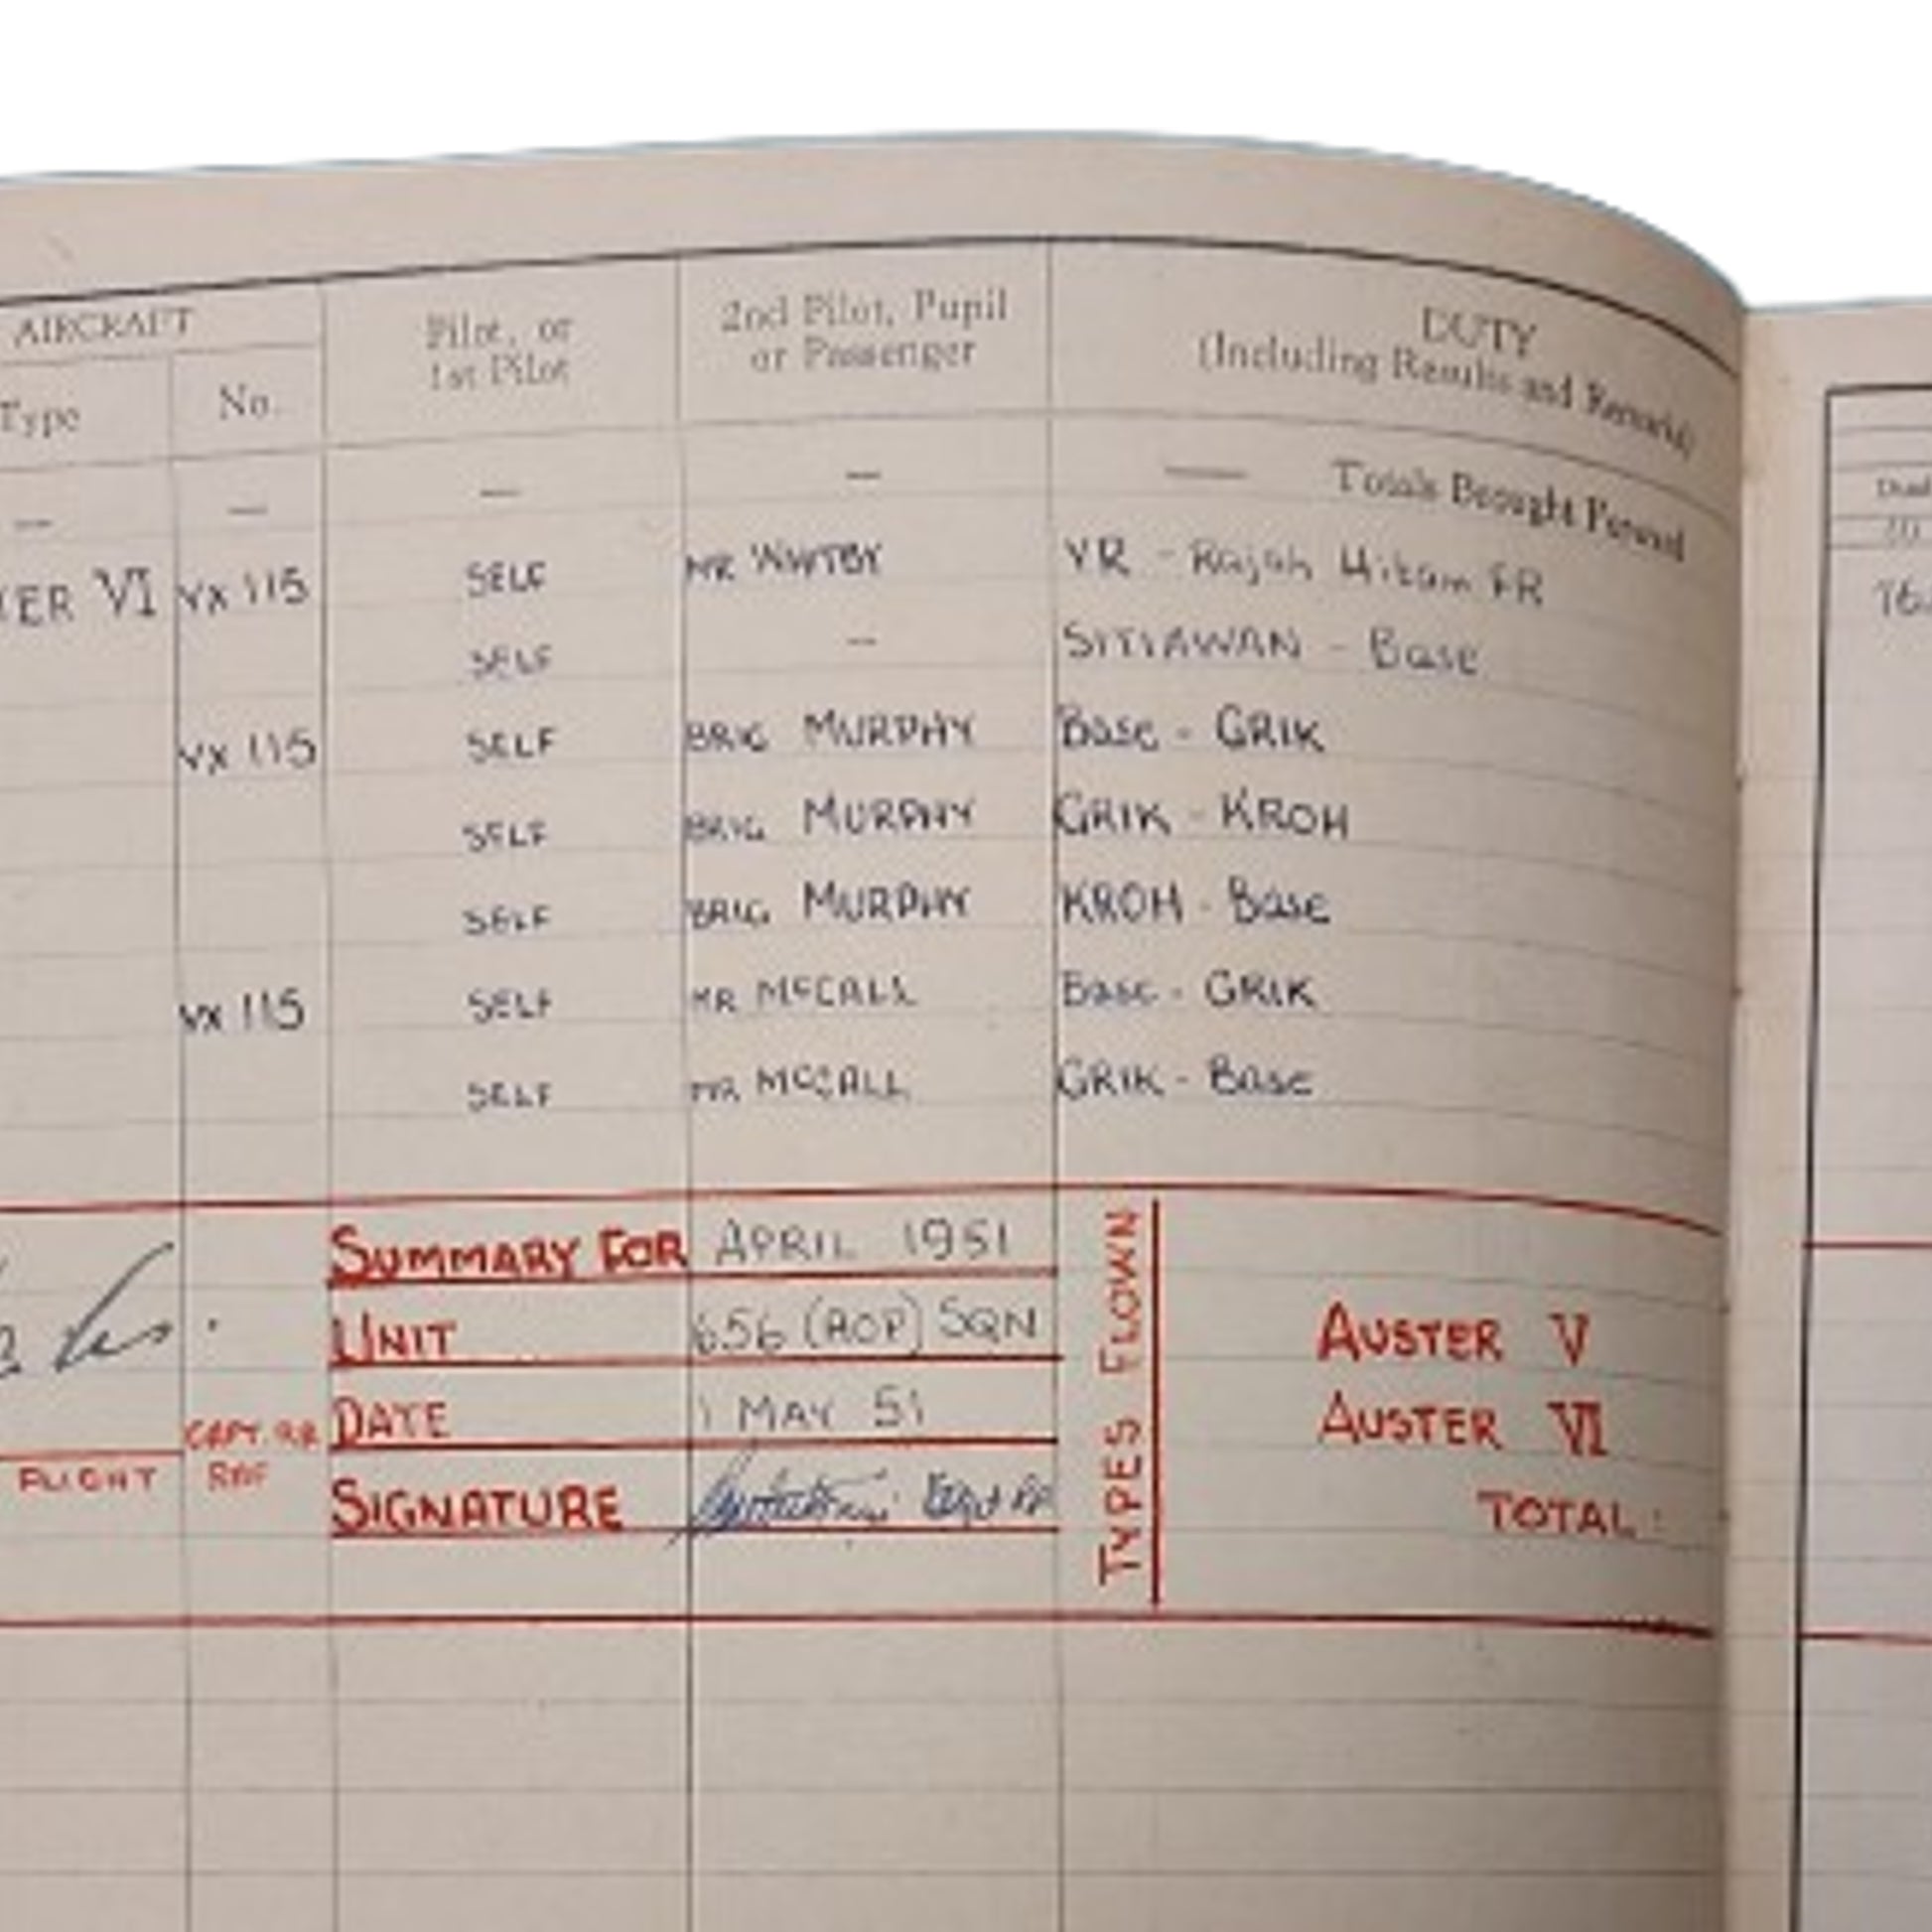 AIRCRAFT Pilot, or 2nd Pilot, Pupil DUTY
Type No. 1st Pilot or Passenger (Including Results and Remarks)
— — — — — Totals Brought Forward
TER VI VX 115 SELF MR WHITBY VR - Rajah Hitam FR
SELF — SITIAWAN - Base
VX 115 SELF BRIG MURPHY Base - GRIK
SELF BRIG MURPHY GRIK - KROH
SELF BRIG MURPHY KROH - Base
VX 115 SELF MR MCCALL Base - GRIK
SELF MR MCCALL GRIK - Base
SUMMARY FOR APRIL 1951
UNIT 656 (AOP) SQN
DATE 1 MAY 51
SIGNATURE Capt RA
FLIGHT CAPT. RA
TYPES FLOWN
AUSTER V
AUSTER VI
TOTAL:
Dual